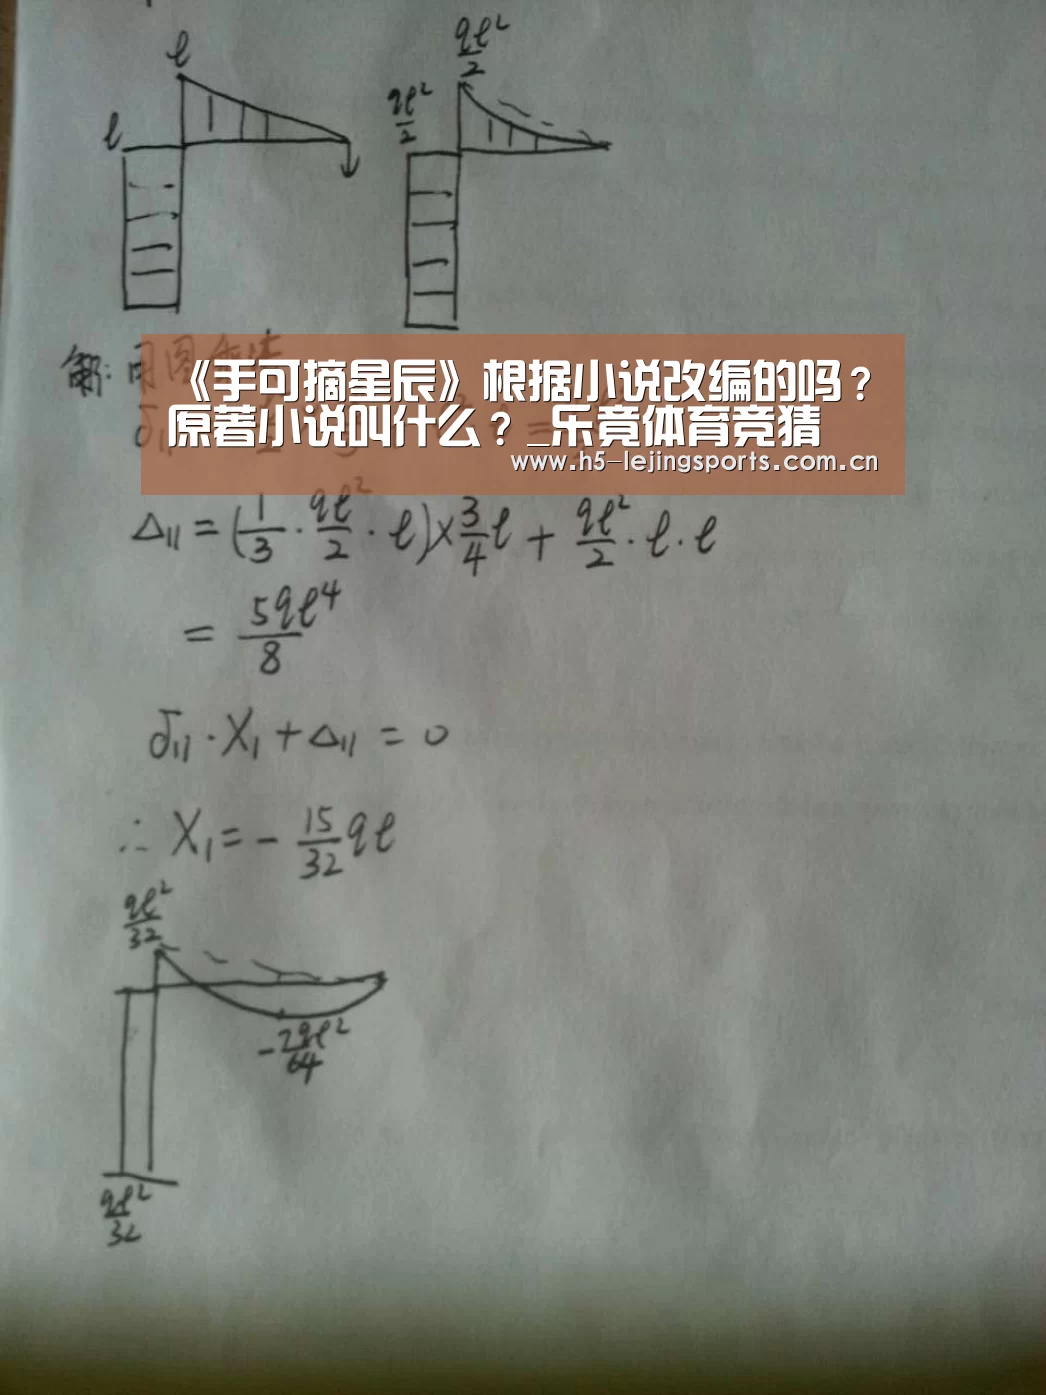 l
ql²/2
l
ql²/2
解: 用图
《手可摘星辰》根据小说改编的吗？
原著小说叫什么？_乐竟体育竞猜
www.h5-lejingsports.com.cn
δ₁₁
Δ₁₁ = (1/3 · ql²/2 · l)×3/4 l + ql²/2 · l · l
= 5ql⁴/8
δ₁₁ · X₁ + Δ₁₁ = 0
∴ X₁ = - 15/32 ql
ql²/32
ql²/32